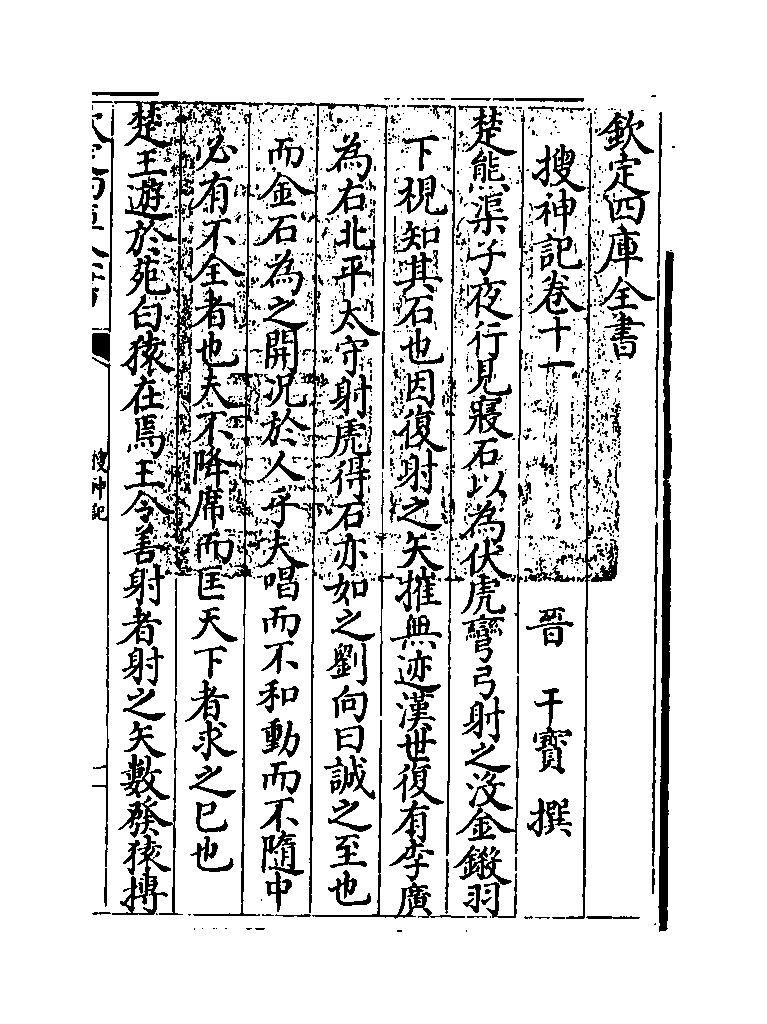 欽定四庫全書
搜神記卷十一
晉 干寶 撰
楚熊渠子夜行見寢石以為伏虎彎弓射之沒金鎩羽
下視知其石也因復射之矢摧無迹漢世復有李廣
為右北平太守射虎得石亦如之劉向曰誠之至也
而金石為之開況於人乎夫唱而不和動而不隨中
必有不全者也夫不降席而匡天下者求之已也
楚王遊於苑白猿在焉王令善射者射之矢數發猿搏
搜神記